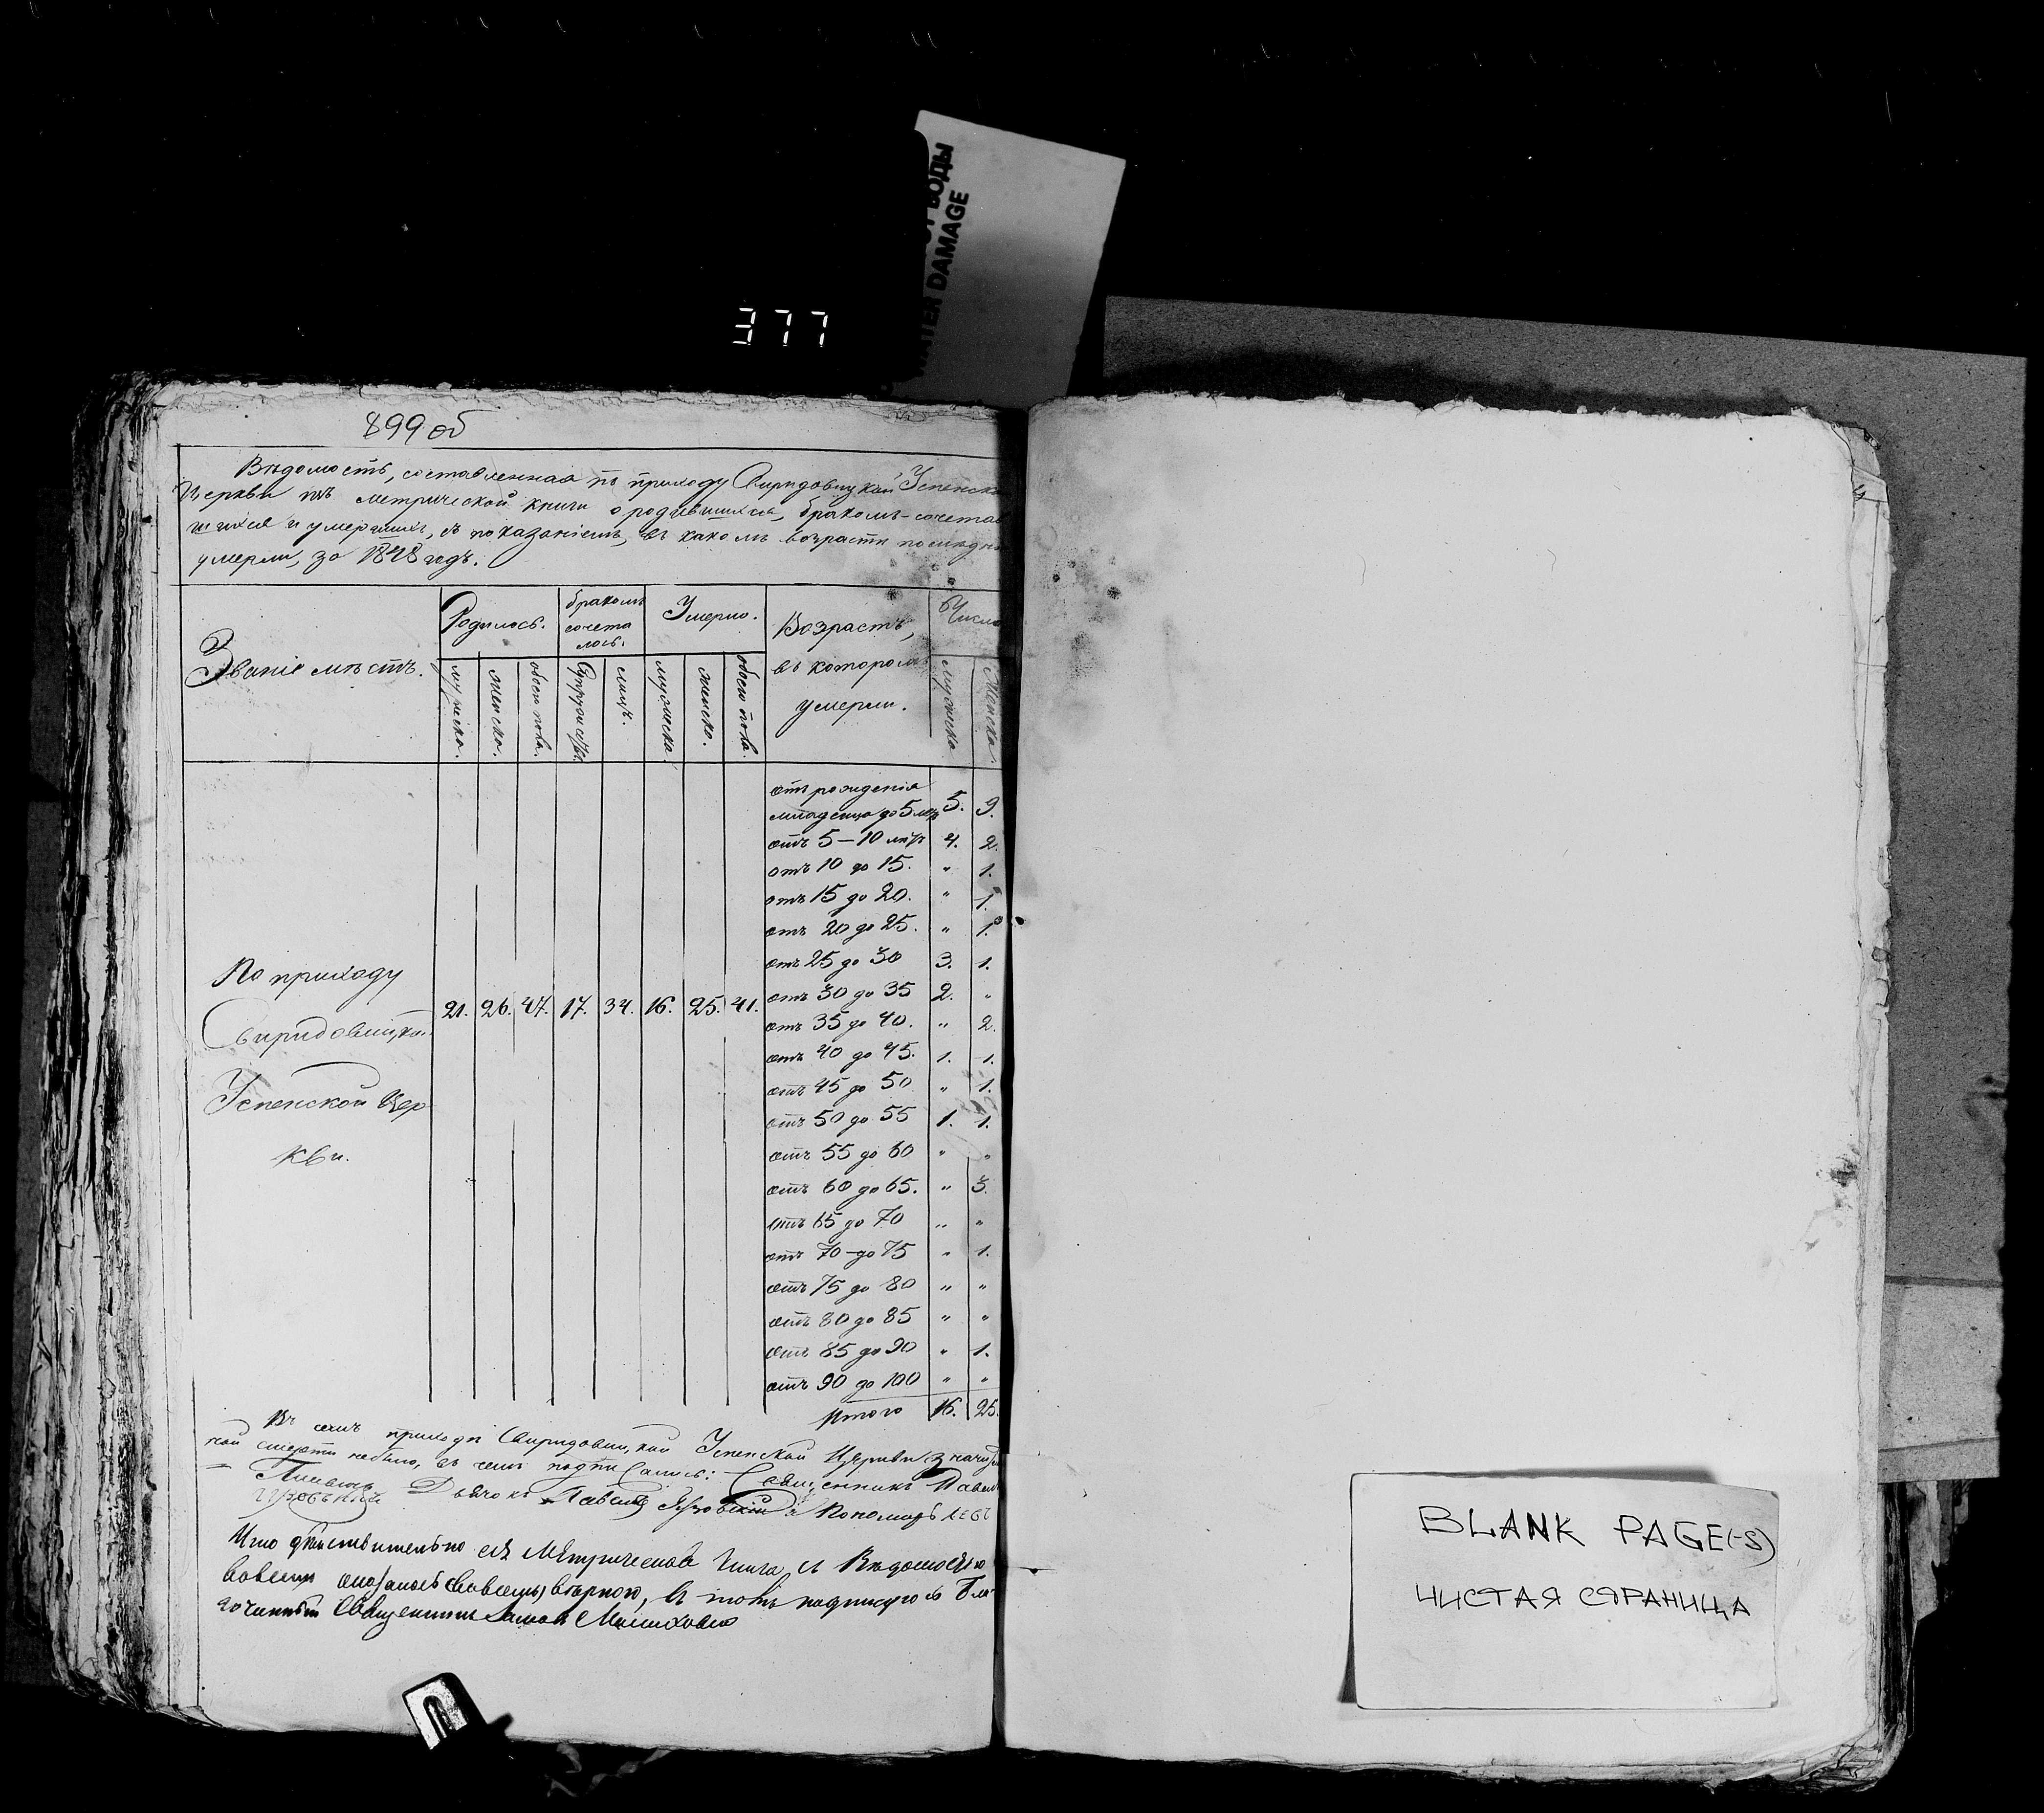 ВОДЫ
WATER DAMAGE
377
899 об
Вѣдомость, составленная по приходу Свиридовицкой Успенско
Церкви изъ метрической книги о родившихся, бракомъ-сочета
шихся и умершихъ, съ показаніемъ, въ какомъ возрастѣ послѣдн
умерли, за 1848 годъ.
Званіе мѣстъ.
Родилось.
бракомъ
сочета
лось.
Умерло.
Возрастъ,
въ которомъ
умерли.
Число
мужеска.
женска.
обоего пола.
Супружествъ.
лицъ.
мужеска.
женска.
обоего пола.
мужеска
Женска.
отъ рожденія
младенца до 5 лѣтъ 5. 9.
отъ 5—10 лѣтъ 4. 2.
отъ 10 до 15. " 1.
отъ 15 до 20. " 1.
отъ 20 до 25. " 1.
отъ 25 до 30 3. 1.
отъ 30 до 35 2. "
отъ 35 до 40. " 2.
отъ 40 до 45. 1. 1.
отъ 45 до 50 " 1.
отъ 50 до 55 1. 1.
отъ 55 до 60 " "
отъ 60 до 65. " 3.
отъ 65 до 70 " "
отъ 70 до 75 " 1.
отъ 75 до 80 " "
отъ 80 до 85 " "
отъ 85 до 90 " 1.
отъ 90 до 100 " "
Итого 16. 25.
По приходу
Свиридовицкой
Успенской Цер
кви.
21. 26. 47. 17. 34. 16. 25. 41.
Въ семъ приходѣ Свиридовицкой Успенской Церкви
кой смерти небыло, въ чемъ подписались: Священникъ Павел
Дьячокъ Павелъ и Пономарь
Что дѣйствительно сія Метрическая Книга съ Вѣдомостью
вѣрною, въ томъ подписуюсь Бла
гочинный Священникъ
BLANK PAGE(-S)
ЧИСТАЯ СТРАНИЦА